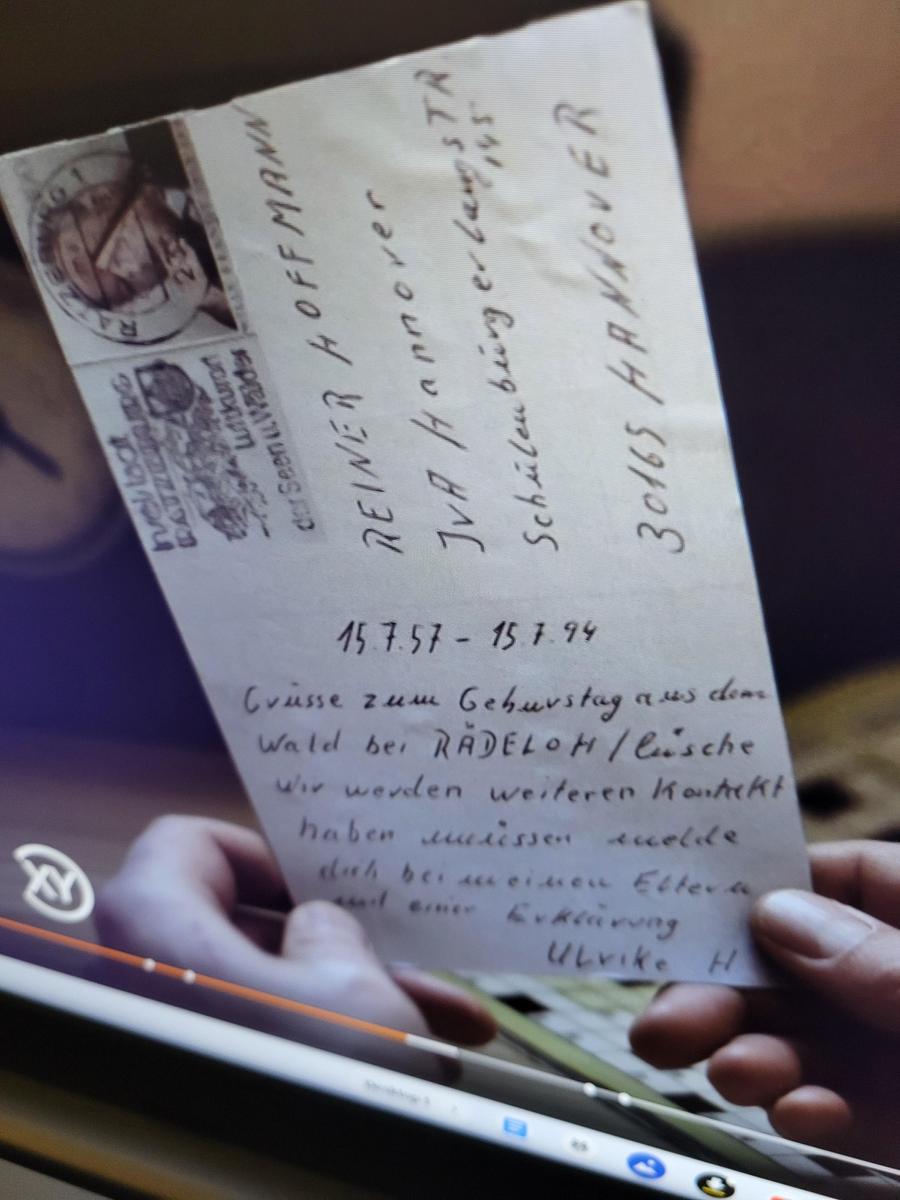 RATZEBURG 1
23
der Seen u. Wälder
REINER HOFFMANN
JVA Hannover
Schülenbürgerlangstr
145
30165 HANNOVER
15.7.57 - 15.7.94
Grüsse zum Geburstag aus dem
Wald bei RÄDELOH / Lüsche
Wir werden weiteren Kontekt
haben müissen melde
dich bei meinen Eltern
mit einer Erklärung
Ulrike H